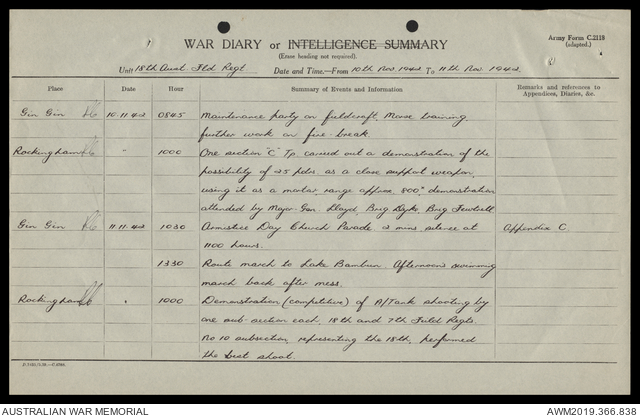 Army Form C.2118
(adapted.)
WAR DIARY or INTELLIGENCE SUMMARY
(Erase heading not required).
Unit 18th Aust. Fld Regt Date and Time—From 10th Nov. 1942 To 11th Nov. 1942
Place Date Hour Summary of Events and Information Remarks and references to Appendices, Diaries, &c.
Gin Gin 10.11.42 0845 Maintenance party on fieldcraft, Morse training
further work on fire-break.
Rockingham " 1000 One section "C" Tp. carried out a demonstration of the
possibility of 25 pdrs as a close support weapon,
using it as a mortar range approx. 800ˣ demonstration
attended by Major-Gen. Lloyd, Brig Dyke, Brig Fewtrell
Gin Gin 11.11.42 1030 Armistice Day Church Parade 2 mins silence at Appendix C.
1100 hours.
1330 Route march to Lake Bambun. Afternoon's swimming
march back after mess.
Rockingham " 1000 Demonstration (competitive) of A/Tank shooting by
one sub-section each, 18th and 7th Field Regts.
No 10 subsection, representing the 18th, performed
the best shoot.
AUSTRALIAN WAR MEMORIAL AWM2019.366.838